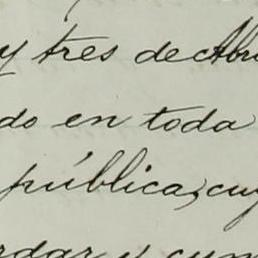 y tres de Abri
do en toda
pública, cuy
rdar y cum